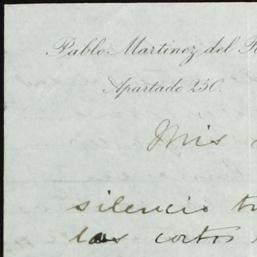 Pablo Martinez del
Apartado 250.
Mis
silencio
las cortos